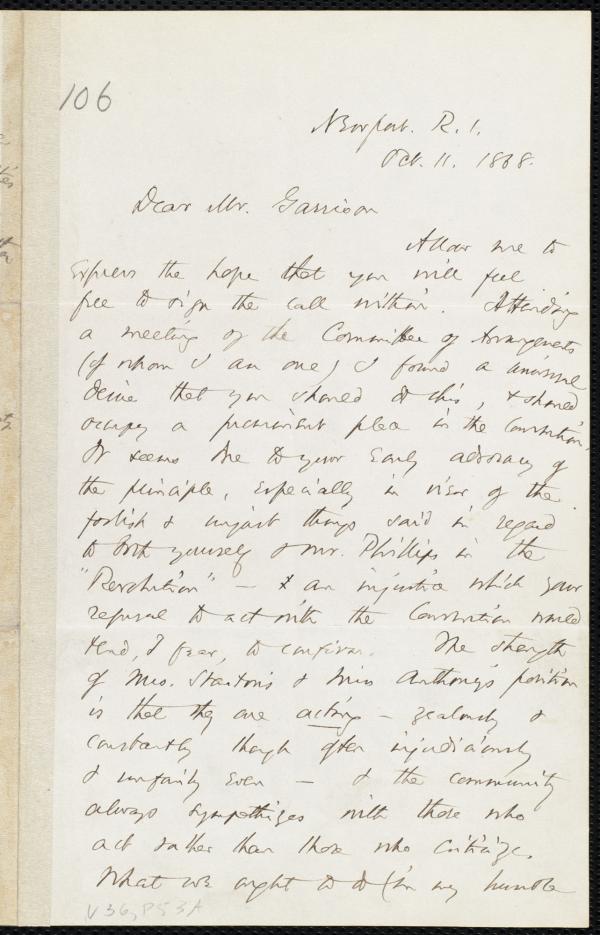 106
Newport. R. I.
Oct. 11. 1868.
Dear Mr. Garrison
Allow me to
express the hope that you will feel
free to sign the call within. Attending
a meeting of the Committee of Arrangements
(of whom I am one) I found a universal
desire that you should do this, & should
occupy a prominent place in the Convention.
It seems due to your early advocacy of
the principle, especially in view of the
foolish & unjust things said in regard
to both yourself & Mr. Phillips in the
"Revolution" — & an injustice which your
refusal to act with the Convention would
tend, I fear, to confirm. The strength
of Mrs. Stanton's & Miss Anthony's position
is that they are acting — zealously &
constantly though often injudiciously
& unfairly even — & the community
always sympathizes with those who
act rather than those who criticize.
What we ought to do (in my humble
V 36, P53A